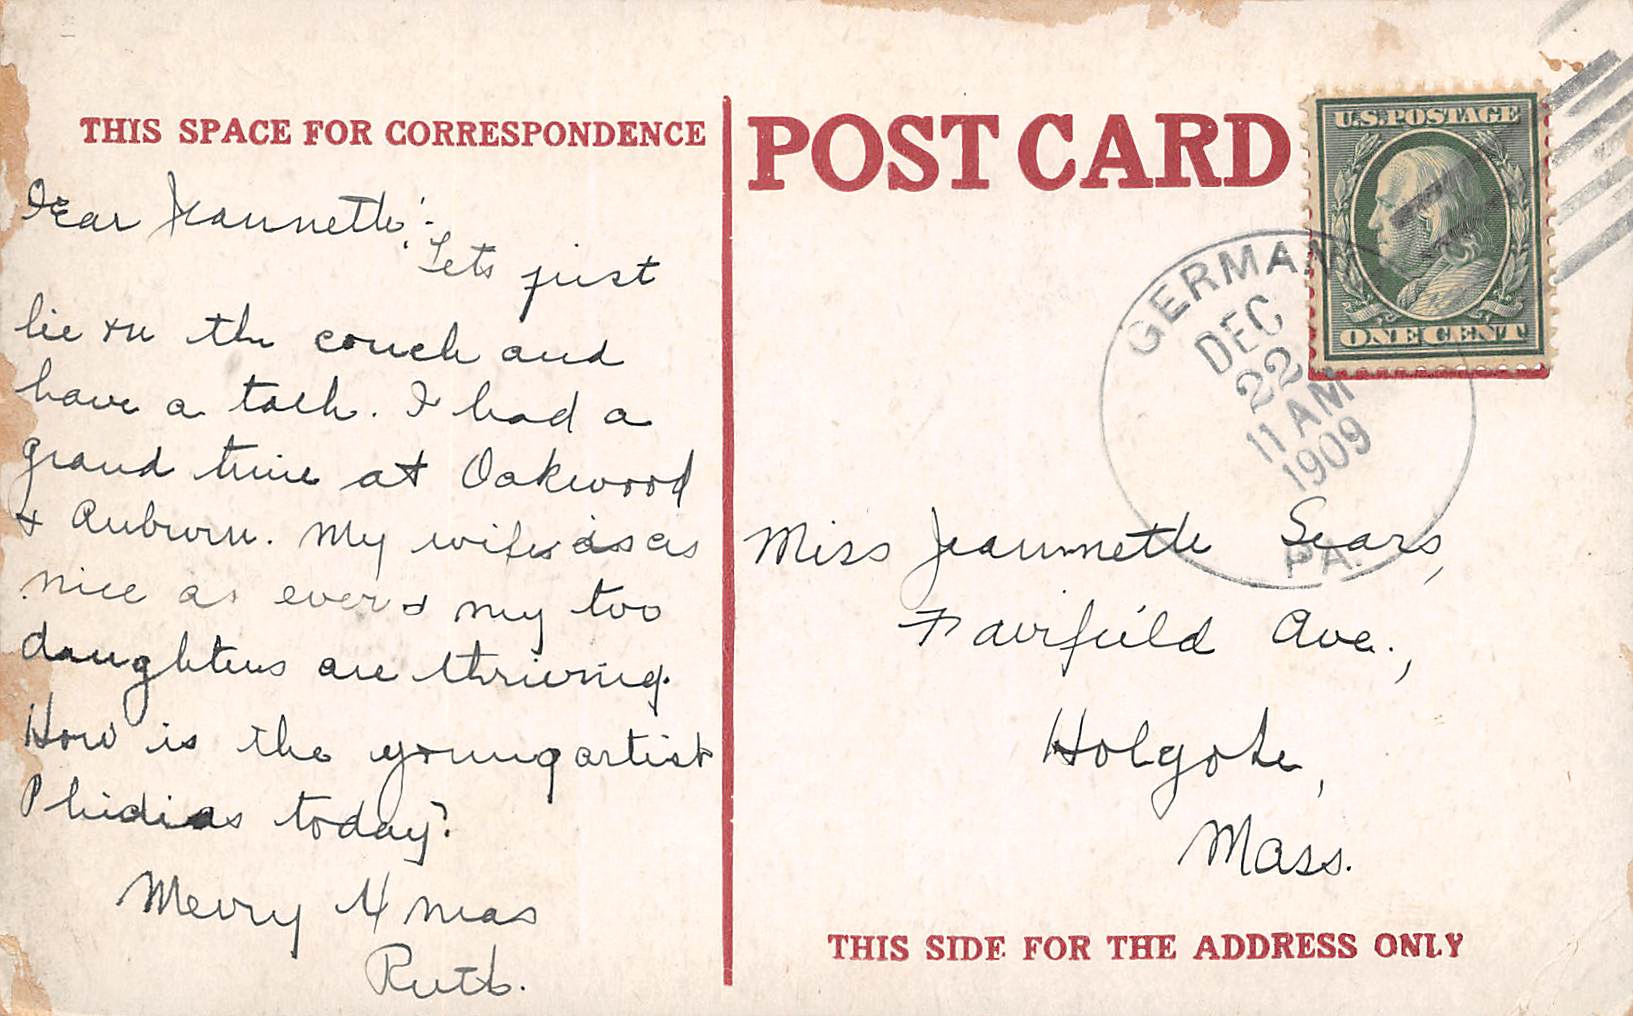 THIS SPACE FOR CORRESPONDENCE
Dear Jeannette:-
Lets just
lie on the couch and
have a talk. I had a
grand time at Oakwood
& Auburn. My wife is as
nice as ever & my two
daughters are thriving.
How is the young artist
Phidias today?
Merry Xmas
Ruth.
POST CARD
U.S. POSTAGE
ONE CENT
GERMAN
DEC
22
11 AM
1909
PA.
Miss Jeannette Sears,
Fairfield Ave.,
Holyoke,
Mass.
THIS SIDE FOR THE ADDRESS ONLY